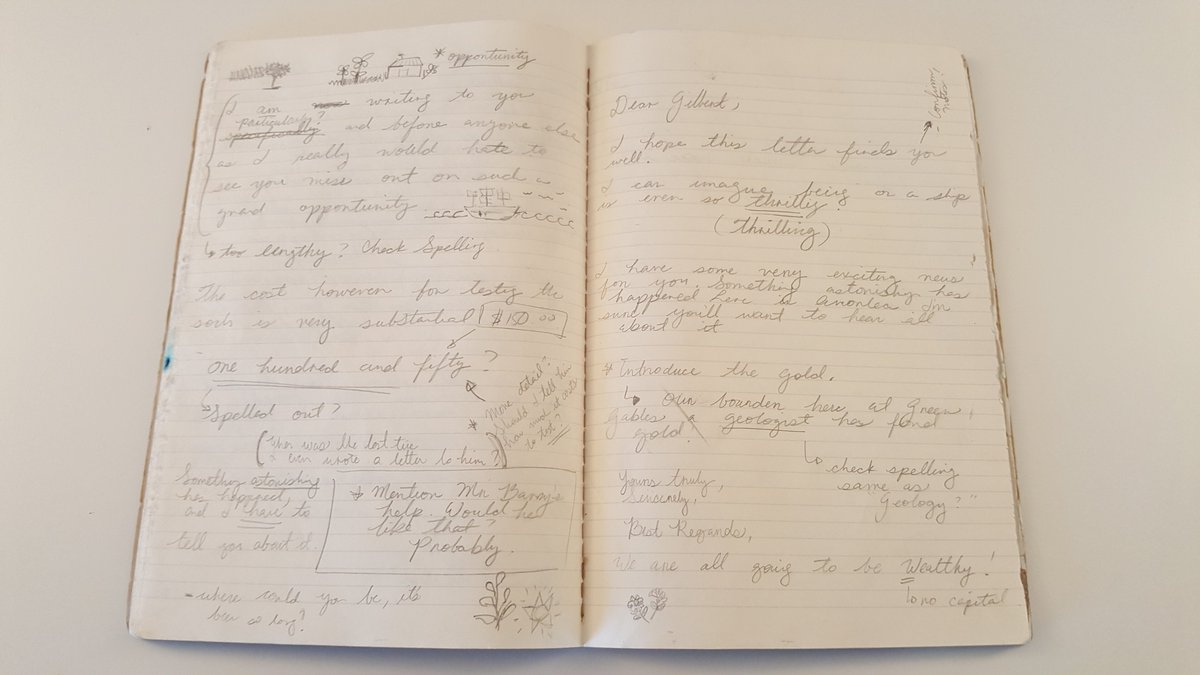 * opportunity
I am writing to you
particularly?
and before anyone else
as I really would hate to
see you miss out on such a
grand opportunity
too lengthy? Check Spelling
The cost however for testing the
soils is very substantial
one hundred and fifty?
Spelled out?
* More detail
Should I tell him
how much it costs
to test?
(When was the last time
I even wrote a letter to him?)
Something astonishing
has happened,
and I have to
tell you about it.
* Mention Mr. Barry's
help. Would he
like that?
Probably.
- where could you be, it's
been so long?
Dear Gilbert,
I hope this letter finds you
well.
I can imagine being on a ship
is even so thrillig
(thrilling)
I have some very exciting news
for you. Something astonishing has
happened here in Avonlea. I'm
sure you'll want to hear all
about it
* Introduce the gold.
Our boarder here at Green
Gables a geologist has found
gold.
check spelling
same as
Geology?"
Yours truly,
Sincerely,
Best Regards,
We are all going to be Wealthy!
no capital